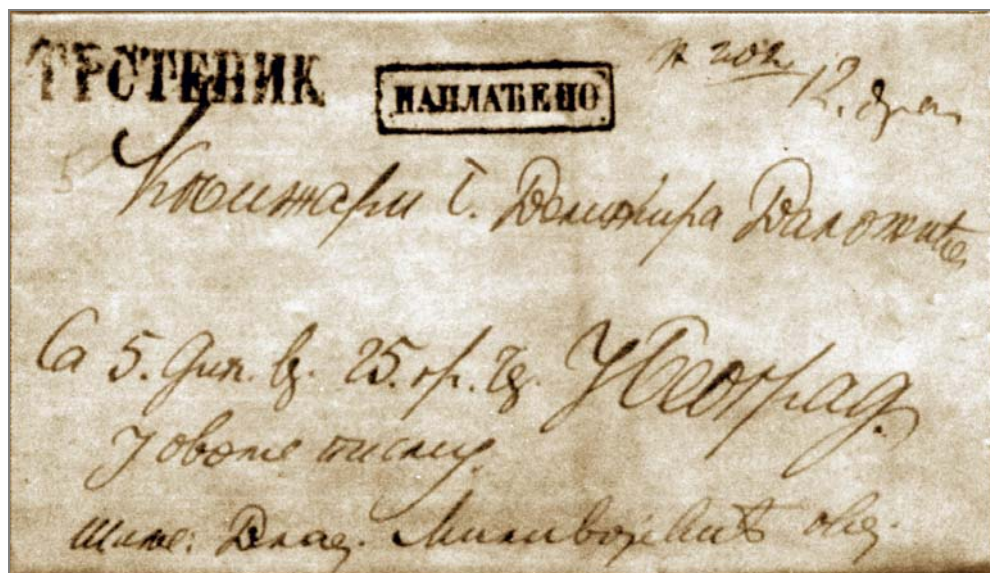 ТРСТЕНИК
НАПЛАЋЕНО
202
12.
Књижари Г. Велимира Валожића
Са 5. 25. У Београд.
У овоме писму.
Шиље: Влад. Миливојевић